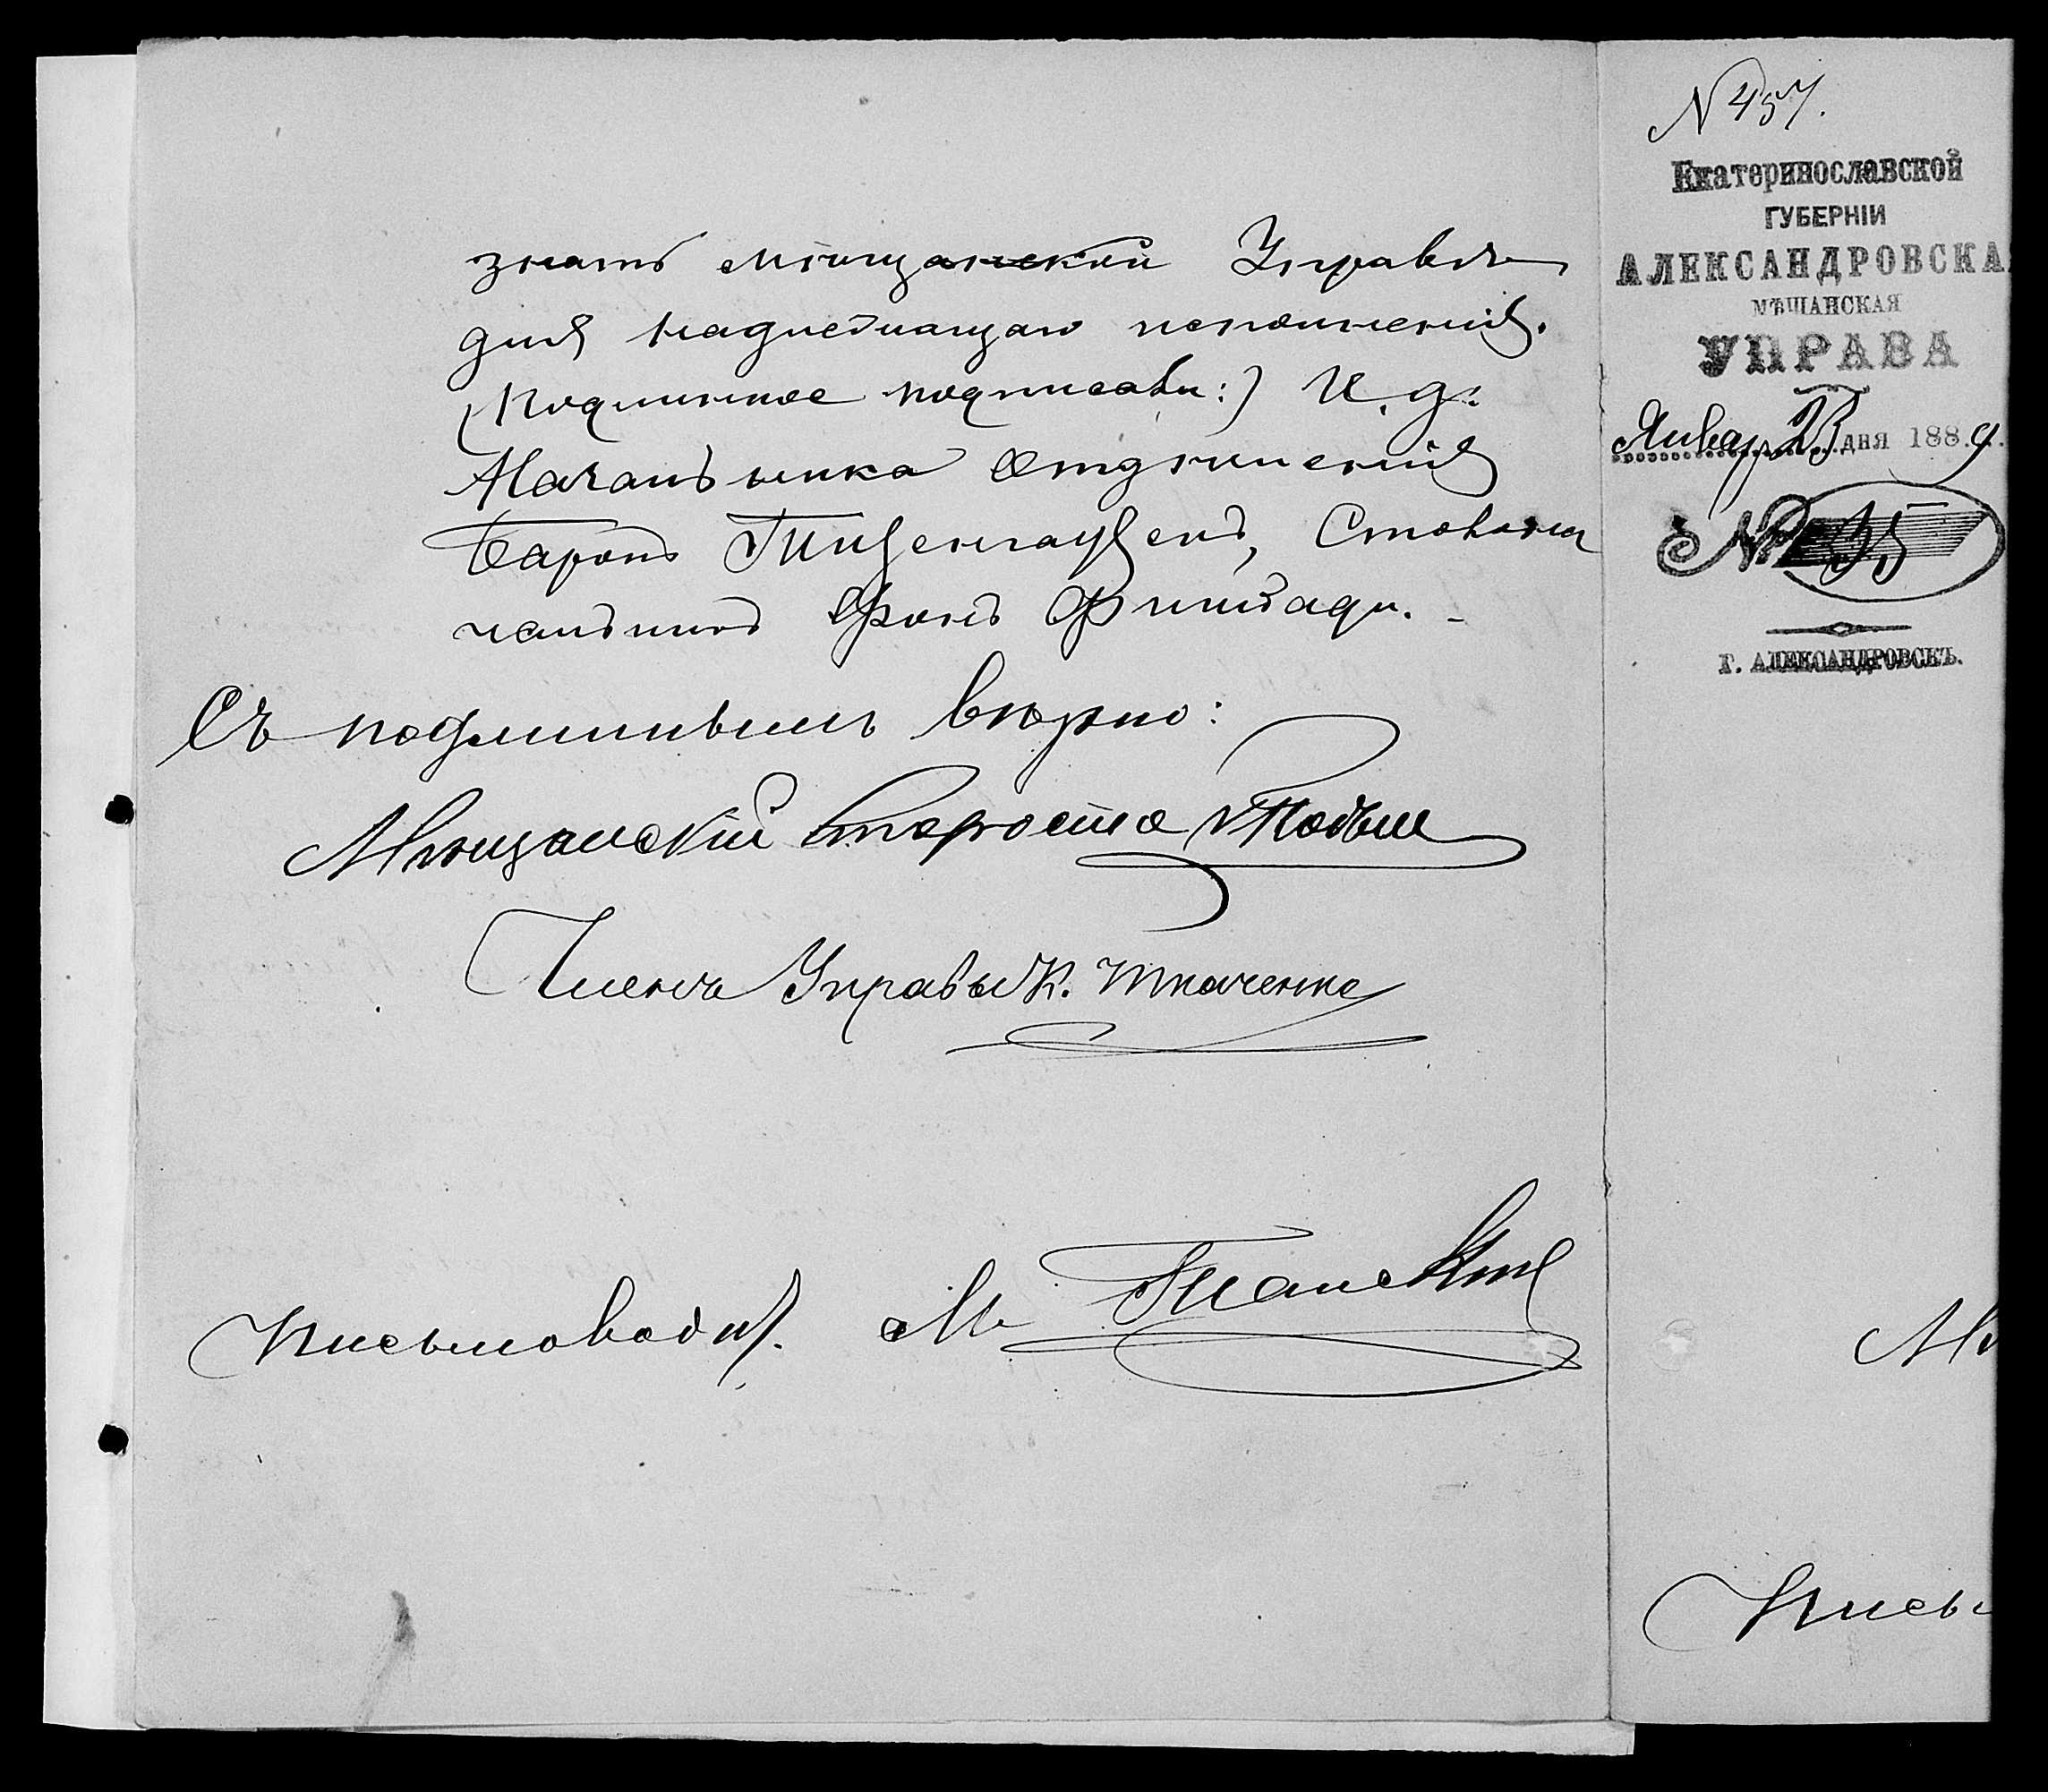 знать мѣщанской Управѣ
для надлежащаго исполненія.
(Подлинное подписали:) И. д.
Начальника Отдѣленія
Баронъ Тизенгаузенъ, Столона
чальникъ Фонъ
Съ подлиннымъ вѣрно:
Мѣщанскій Староста
Членъ Управы К. Ткаченко
Письмоводит.
N 457.
Екатеринославской
ГУБЕРНІИ
АЛЕКСАНДРОВСКА
МѢЩАНСКАЯ
УПРАВА
Январ 23 дня 1889.
№ 35
Г. АЛЕКСАНДРОВСКЪ.
Мѣ
Письм